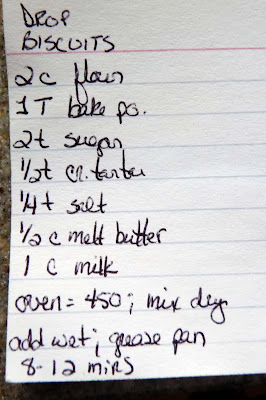 DROP
BISCUITS
2 c flour
1 T bake po.
2t sugar
1/2t cr. tartar
1/4 t salt
1/2 c melt butter
1 c milk
oven = 450; mix dry
add wet; grease pan
8-12 mins